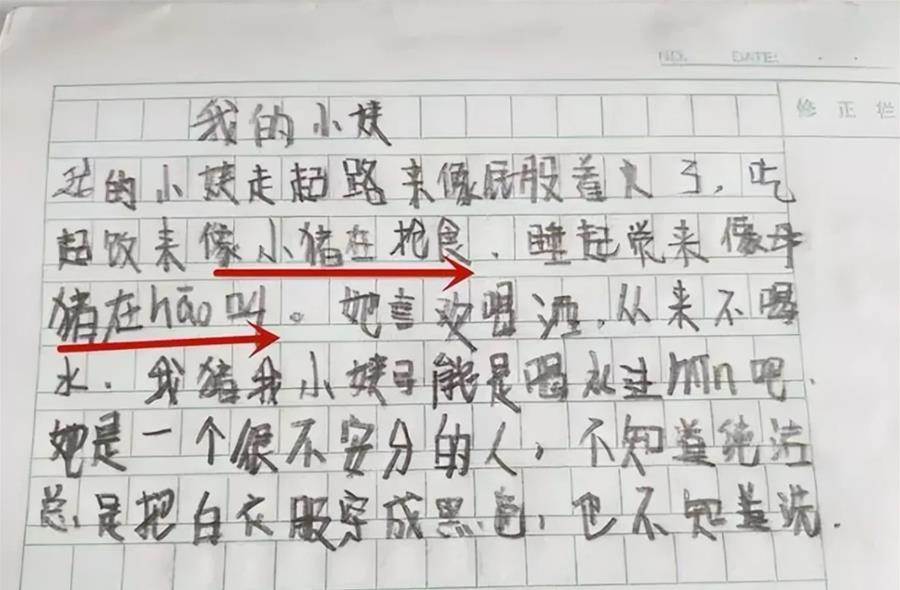 NO. DATE:
修正栏
我的小姨
我的小姨走起路来像屁股着火了,吃
起饭来像小猪在抢食、睡起觉来像母
猪在hāo叫。她喜欢喝酒,从来不喝
水.我猪我小姨可能是喝水过Mǐn吧.
她是一个很不安分的人,不知道纯洁
总是把白衣服穿成黑色,也不知道洗.